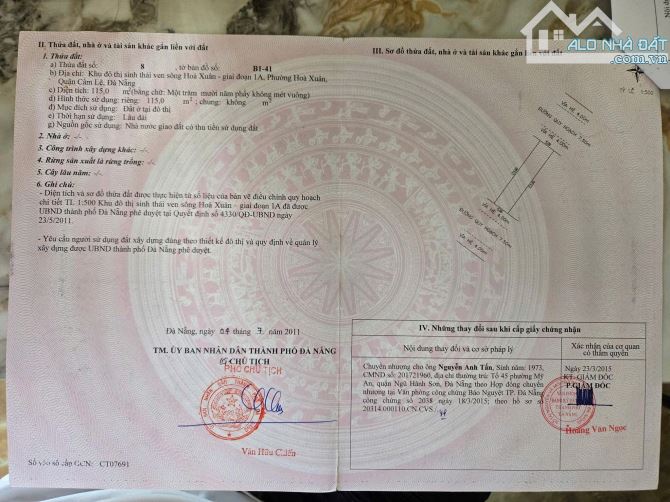 ALO NHÀ ĐẤT
II. Thửa đất, nhà ở và tài sản khác gắn liền với đất
1. Thửa đất:
a) Thửa đất số: 8 , tờ bản đồ số: B1-41
b) Địa chỉ: Khu đô thị sinh thái ven sông Hoà Xuân - giai đoạn 1A, Phường Hoà Xuân,
Quận Cẩm Lệ, Đà Nẵng
c) Diện tích: 115,0 m² (bằng chữ: Một trăm mười năm phẩy không mét vuông)
d) Hình thức sử dụng: riêng: 115,0 m² ; chung: không m²
đ) Mục đích sử dụng: Đất ở tại đô thị
e) Thời hạn sử dụng: Lâu dài
g) Nguồn gốc sử dụng: Nhà nước giao đất có thu tiền sử dụng đất
2. Nhà ở: -/-
3. Công trình xây dựng khác: -/-
4. Rừng sản xuất là rừng trồng: -/-
5. Cây lâu năm: -/-
6. Ghi chú:
- Diện tích và sơ đồ thửa đất được thực hiện từ số liệu của bản vẽ điều chỉnh quy hoạch
chi tiết TL 1:500 Khu đô thị sinh thái ven sông Hoà Xuân - giai đoạn 1A đã được
UBND thành phố Đà Nẵng phê duyệt tại Quyết định số 4330/QĐ-UBND ngày
23/5/2011.
- Yêu cầu người sử dụng đất xây dựng đúng theo thiết kế đô thị và quy định về quản lý
xây dựng được UBND thành phố Đà Nẵng phê duyệt.
Đà Nẵng, ngày 04 tháng 7 năm 2011
TM. ỦY BAN NHÂN DÂN THÀNH PHỐ ĐÀ NẴNG
CHỦ TỊCH
PHÓ CHỦ TỊCH
Văn Hữu Chiến
Số vào sổ cấp GCN: CT07691
III. Sơ đồ thửa đất, nhà ở và tài sản khác gắn liền với đất
TỶ LỆ 1:500
VỈA HÈ 4.00m
ĐƯỜNG QUY HOẠCH 7.50m
VỈA HÈ 4.00m
VỈA HÈ 4.00m
ĐƯỜNG QUY HOẠCH 7.50m
VỈA HÈ 4.00m
IV. Những thay đổi sau khi cấp giấy chứng nhận
Nội dung thay đổi và cơ sở pháp lý
Xác nhận của cơ quan
có thẩm quyền
Chuyển nhượng cho ông Nguyễn Anh Tấn, Sinh năm: 1973,
CMND số: 201721960, địa chỉ thường trú: Tổ 45 phường Mỹ
An, quận Ngũ Hành Sơn, Đà Nẵng theo Hợp đồng chuyển
nhượng tại Văn phòng công chứng Bảo Nguyệt TP. Đà Nẵng
công chứng số 2038 ngày 18/3/2015; theo hồ sơ số
20314.000110.CN.CVS.
23/3/2015
KT. GIÁM ĐỐC
P.GIÁM ĐỐC
Hoàng Văn Ngọc